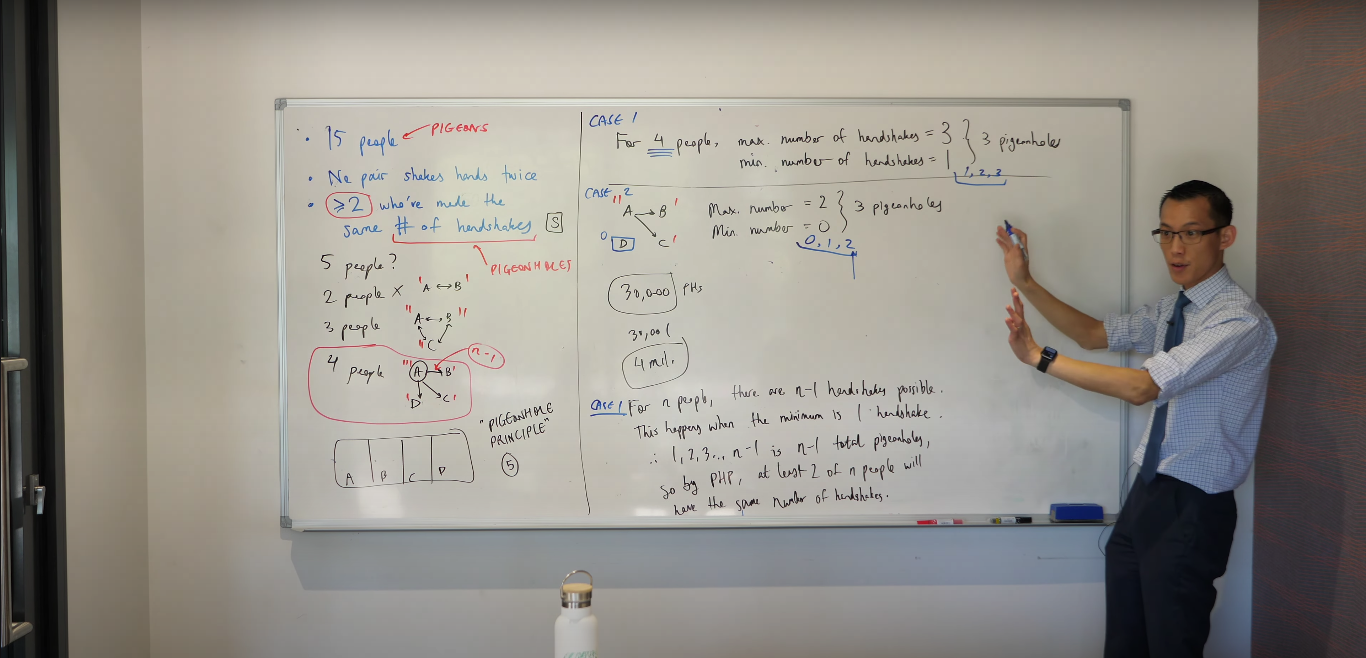 • 15 people PIGEONS
• No pair shakes hands twice
• ⩾2 who've made the
same # of handshakes S
PIGEONHOLES
5 people?
2 people × 'A ↔ B'
3 people "A ↔ B"
"C
4 people '''A → B' n-1
'D C'
A B C D
"PIGEONHOLE
PRINCIPLE"
5
CASE 1
For 4 people, max. number of handshakes = 3 } 3 pigeonholes
min. number of handshakes = 1
1, 2, 3
CASE 2
"A → B' Max. number = 2 } 3 pigeonholes
0 D C' Min. number = 0
0, 1, 2
30,000 PHs
30,001
4 mil.
CASE 1 For n people, there are n-1 handshakes possible.
This happens when the minimum is 1 handshake.
∴ 1, 2, 3... n-1 is n-1 total pigeonholes,
so by PHP, at least 2 of n people will
have the same number of handshakes.